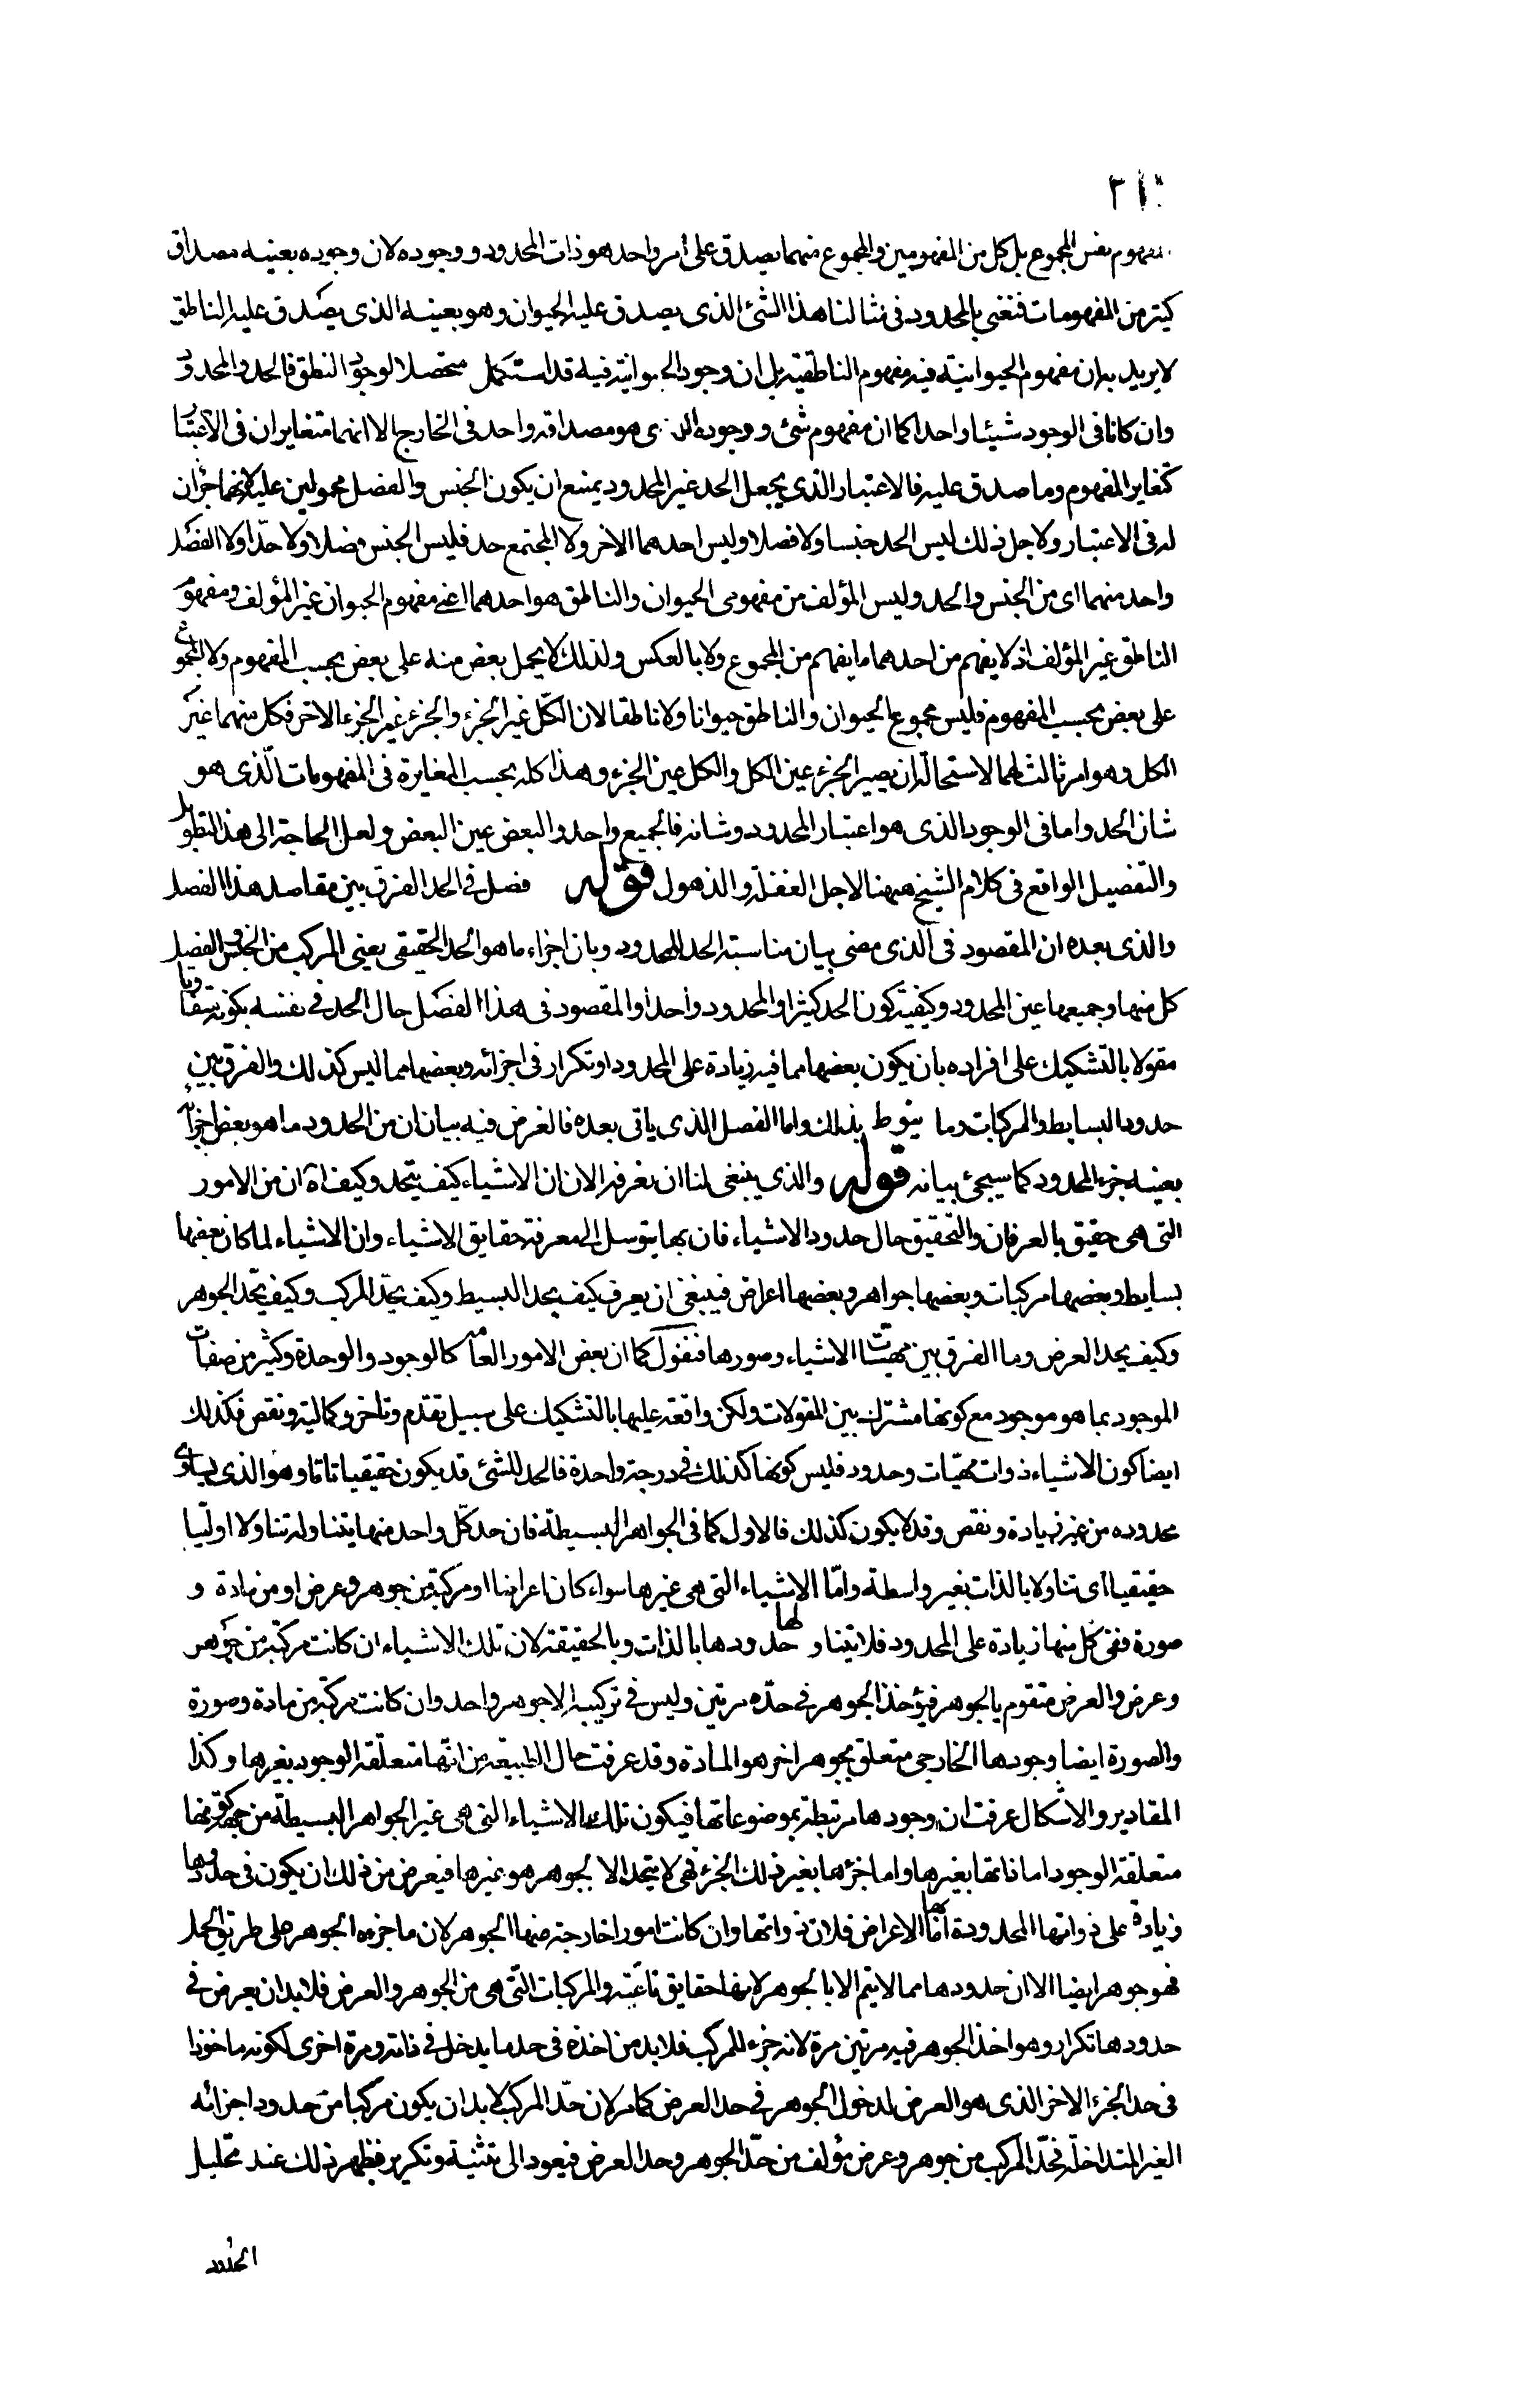 مفهوم نفس المجموع بل كل من المفهومين والمجموع منهما يصدق على أمر واحد هو ذات المحدود ووجوده لان وجوده بعينه مصداق
كثير من المفهومات فنعنى بالمحدود فى مثالنا هذا الشئ الذى يصدق عليه الحيوان وهو بعينه الذى يصدق عليه الناطق
لا يريد به ان مفهوم الحيوانية فيه مفهوم الناطقية بل ان وجود الحيوانية فيه قد استكمل متحصلا لوجود النطق فالحد والمحدود
وان كانا فى الوجود شيئا واحدا كما ان مفهوم شئ ووجوده الذى هو مصداقه واحد فى الخارج الا انهما متغايران فى الاعتبار
كتغاير المفهوم وما صدق عليه فالاعتبار الذى يجعل الحد غير المحدود يمتنع ان يكون الجنس والفصل محمولين عليه لانهما جزءان
له فى الاعتبار ولاجل ذلك ليس الحد جنسا ولا فصلا وليس احدهما الاخر ولا المجتمع حد فليس الجنس فصلا ولا حدا ولا الفصل
واحد منهما اى من الجنس والحد وليس المؤلف من مفهومى الحيوان والناطق هو احدهما اعنى مفهوم الحيوان غير المؤلف ومفهوم
الناطق غير المؤلف اذ لا يفهم من احدهما ما يفهم من المجموع ولا بالعكس ولذلك لا يحمل بعض منه على بعض بحسب المفهوم ولا المجموع
على بعض بحسب المفهوم فليس مجموع الحيوان والناطق حيوانا ولا ناطقا لان الكل غير الجزء والجزء غير الجزء الاخر فكل منهما غير
الكل وهو امر ثالث لهما لاستحالة ان يصير الجزء عين الكل والكل عين الجزء وهذا كله بحسب المغايرة فى المفهومات الذى هو
شان الحد واما فى الوجود الذى هو اعتبار المحدود وشانه فالجميع واحد والبعض عين البعض ولعل الحاجة الى هذا التطويل
والتفصيل الواقع فى كلام الشيخ ههنا لاجل الغفلة والذهول قوله فصل فى الحد الفرق بين مقاصد هذا الفصل
والذى بعده ان المقصود فى الذى مضى بيان مناسبة الحد للمحدود وبان اجزاء ما هو الحد الحقيقى يعنى المركب من الجنس والفصل
كل منها وجميعها عين المحدود وكيفية كون الحد كثيرا والمحدود واحدا والمقصود فى هذا الفصل حال الحد فى نفسه بكونه متفاوتا
مقولا بالتشكيك على افراده بأن يكون بعضها مما فيه زيادة على المحدود او تكرار فى اجزائه وبعضها مما ليس كذلك والفرق بين
حدود البسايط والمركبات وما ينوط بذلك واما الفصل الذى ياتى بعده فالغرض فيه بيان ان من الحدود ما هو بعض اجزائه
بعينه جزء المحدود كما سيجئ بيانه قوله والذى ينبغى لنا ان نعرفه الان ان الاشياء كيف يتحد وكيف اه ان من الامور
التى هى حقيق بالعرفان والتحقيق حال حدود الاشياء فان بها يتوسل الى معرفة حقايق الاشياء وان الاشياء لما كان بعضها
بسايط وبعضها مركبات وبعضها جواهر وبعضها اعراض فينبغى ان يعرف كيف يحد البسيط وكيف يحد المركب وكيف يحد الجوهر
وكيف يحد العرض وما الفرق بين مهيّات الاشياء وصورها فنقول كما ان بعض الامور العامه كالوجود والوحدة وكثير من صفات
الموجود بما هو موجود مع كونها مشتركة بين المقولات ولكن واقعة عليها بالتشكيك على سبيل تقدم وتاخر وكمالية ونقص فكذلك
ايضا كون الاشياء ذوات مهيّات وحدود فليس كونها كذلك فى درجة واحدة فالحد للشئ قد يكون حقيقيا تاما وهو الذى يساوى
محدوده من غير زيادة ونقص وقد لا يكون كذلك فالاول كما فى الجواهر البسيطة فان حد كل واحد منها يتناوله تناولا اوليّا
حقيقيا اى تناولا بالذات بغير واسطة وامّا الاشياء التى هى غيرها سواء كان اعراضا او مركبة من جوهر وعرض او من مادة و
صورة ففى كل منها زيادة على المحدود فلا يتناولها حدودها بالذات وبالحقيقة لان تلك الاشياء ان كانت مركبة من جوهر
وعرض والعرض متقوم بالجوهر فيؤخذ الجوهر فى حدّه مرتين وليس فى تركيبه الا جوهر واحد وان كانت مركبة من مادة وصورة
والصورة ايضا وجودها الخارجى متعلق بجوهر اخر هو المادة وقد عرفت حال الطبيعة من انها متعلقة الوجود بغيرها وكذا
المقادير والاشكال عرفت ان وجودها مرتبطة بموضوعاتها فيكون تلك الاشياء التى هى غير الجواهر البسيطة من جهة كونها
متعلقة الوجود اما ذاتها بغيرها واما جزءها بغير ذلك الجزء فهى لا يتحد الا بجوهر هو غيرها فيعرض من ذلك ان يكون فى حدودها
زيادة على ذواتها المحدودة امّا الاعراض فلان ذواتها وان كانت امورا خارجة عنها الجوهر لان ما جزءه الجوهر على طريق الحمل
فهو جوهر ايضا الا ان حدودها مما لا يتم الا بالجوهر لانها حقايق ناعتة والمركبات التى هى من الجوهر والعرض فلا بد ان يعرض فى
حدودها تكرار وهو اخذ الجوهر فيه مرتين مرة لانه جزء للمركب فلا بد من اخذه فى حد ما يدخل فى ذاته ومرة اخرى لكونه ماخوذا
فى حد الجزء الاخر الذى هو العرض لدخول الجوهر فى حد العرض كما مر لان حدّ المركب لا بد ان يكون مركبا من حدود اجزائه
الغير المتداخلة فحدّ المركب من جوهر وعرض مؤلف من حدّ الجوهر وحد العرض فيعود الى تثنية وتكرير فظهر ذلك عند تحليل
الحدود